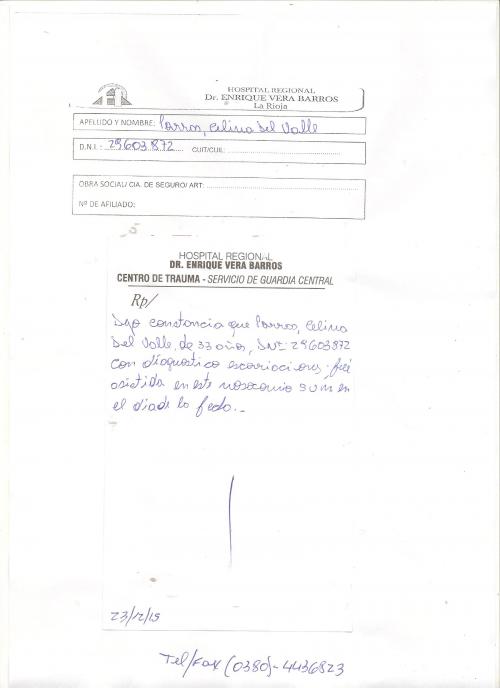 HOSPITAL REGIONAL
Dr. ENRIQUE VERA BARROS
La Rioja
APELLIDO Y NOMBRE: Parros, Celina del Valle
D.N.I.: 29603872 CUIT/CUIL:
OBRA SOCIAL/ CIA. DE SEGURO/ ART:
Nº DE AFILIADO:
HOSPITAL REGIONAL
DR. ENRIQUE VERA BARROS
CENTRO DE TRAUMA - SERVICIO DE GUARDIA CENTRAL
Rp/
Dejo constancia que Parros, Celina
Del Valle, de 33 años, DNI: 29603872
con diagnostico escoriaciones. fué
asistida en este nosocomio en
el dia de la fecha.-
23/12/15
Tel/Fax (0380)-4436823